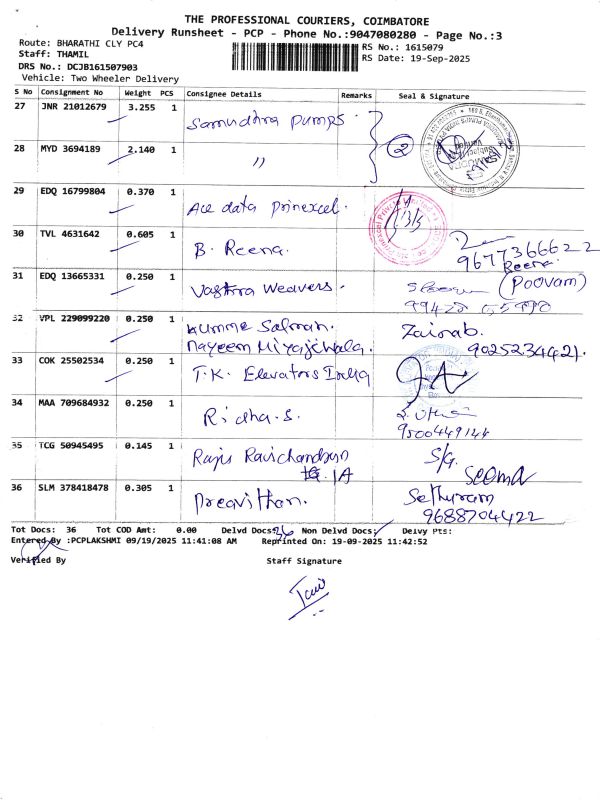 THE PROFESSIONAL COURIERS, COIMBATORE
Delivery Runsheet - PCP - Phone No.:9047080280 - Page No.:3
Route: BHARATHI CLY PC4
RS No.: 1615079
Staff: THAMIL
RS Date: 19-Sep-2025
DRS No.: DCJB161507903
Vehicle: Two Wheeler Delivery
S No Consignment No Weight PCS Consignee Details Remarks Seal & Signature
27 JNR 21012679 3.255 1 Samudhra Pumps. 2
28 MYD 3694189 2.140 1 "
29 EDQ 16799804 0.370 1 Ace data prinexcel.
30 TVL 4631642 0.605 1 B. Reena. 9677366622
Reena
31 EDQ 13665331 0.250 1 Vastra Weavers. (Poovam)
32 VPL 229099220 0.250 1 Kumme Salman. Zainab.
Nayeem Miyajiwala. 9025234421.
33 COK 25502534 0.250 1 T.K. Elevators India
34 MAA 709684932 0.250 1 Ridha.S.
9500449144
35 TCG 50945495 0.145 1 Raju Ravichandran S/G.
1A Seema
36 SLM 378418478 0.305 1 Preavithan. Sethuram
9688704422
Tot Docs: 36 Tot COD Amt: 0.00 Delvd Docs: 36 Non Delvd Docs: Delvy Pts:
Entered By :PCPLAKSHMI 09/19/2025 11:41:08 AM Reprinted On: 19-09-2025 11:42:52
Verified By Staff Signature